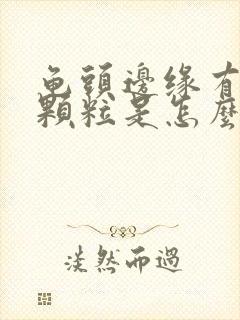 龟頭邊緣有
顆粒是怎麼
淡然而過